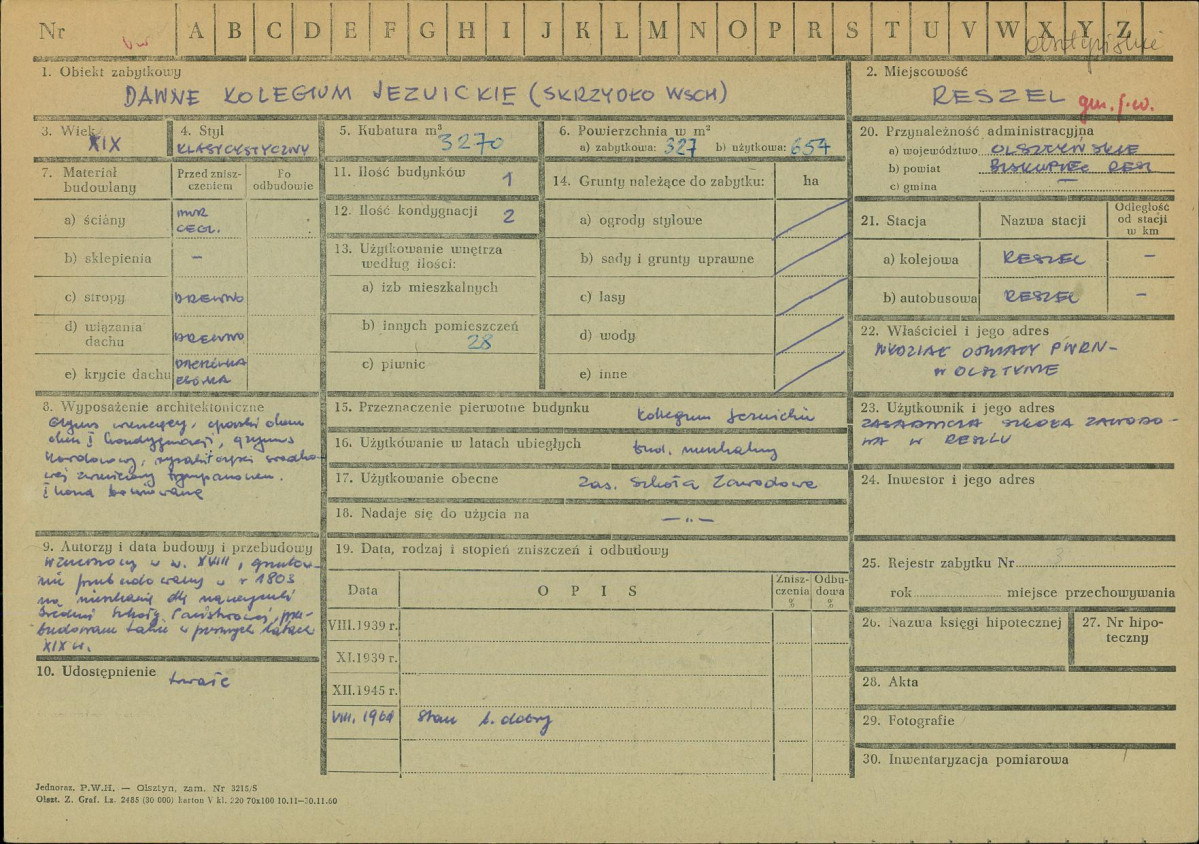 Nr A B C D E F G H I J K L M N O P R S T U V W X Y Z
olsztyńskie
1. Obiekt zabytkowy
DAWNE KOLEGIUM JEZUICKIE (SKRZYDŁO WSCH)
2. Miejscowość
RESZEL gm. l-w.
3. Wiek
XIX
4. Styl
KLASYCYSTYCZNY
5. Kubatura m³
3270
6. Powierzchnia w m²
a) zabytkowa: 327 b) użytkowa: 654
20. Przynależność administracyjna
a) województwo OLSZTYŃSKIE
b) powiat BISKUPIEC RESZ
c) gmina —
7. Materiał
budowlany
Przed znisz-
czeniem
Po
odbudowie
a) ściany
MUR
CEGL.
b) sklepienia –
c) stropy DREWNO
d) wiązania
dachu DREWNO
e) krycie dachu
DACHÓWKA
11. Ilość budynków 1
12. Ilość kondygnacji 2
13. Użytkowanie wnętrza
według ilości:
a) izb mieszkalnych
b) innych pomieszczeń
28
c) piwnic
14. Grunty należące do zabytku: ha
a) ogrody stylowe
b) sady i grunty uprawne
c) lasy
d) wody
e) inne
21. Stacja Nazwa stacji
Odległość
od stacji
w km
a) kolejowa RESZEL –
b) autobusowa RESZEL –
22. Właściciel i jego adres
WYDZIAŁ OŚWIATY PWRN-
W OLSZTYNIE
8. Wyposażenie architektoniczne
Gzyms wieńczący, opaski okien
okien I kondygnacji, gzyms
kordonowy, ryzalit części środko-
wej zwieńczony tympanonem.
I kond boniowana
15. Przeznaczenie pierwotne budynku Kolegium Jezuickie
16. Użytkowanie w latach ubiegłych bud. mieszkalny
17. Użytkowanie obecne Zas. Szkoła Zawodowa
18. Nadaje się do użycia na — „ —
23. Użytkownik i jego adres
ZASADNICZA SZKOŁA ZAWODO-
WA W RESZLU
24. Inwestor i jego adres
9. Autorzy i data budowy i przebudowy
Wzniesiony w w. XVIII, gruntow-
nie przebudowany w r 1803
na mieszkanie dla nauczycieli
średniej szkoły Państwowej, prze-
budowano także w pierwszych latach
XIX w.
10. Udostępnienie trwałe
19. Data, rodzaj i stopień zniszczeń i odbudowy
Data O P I S
Znisz-
czenia
%
Odbu-
dowa
%
VIII.1939 r.
XI.1939 r.
XII.1945 r.
VIII.1961 Stan b. dobry
25. Rejestr zabytku Nr
rok miejsce przechowywania
26. Nazwa księgi hipotecznej
27. Nr hipo-
teczny
28. Akta
29. Fotografie
30. Inwentaryzacja pomiarowa
Jednoraz. P.W.H. — Olsztyn, zam. Nr 3215/S
Olszt. Z. Graf. Lz. 2485 (30 000) karton V kl. 220 70x100 10.11—30.11.60